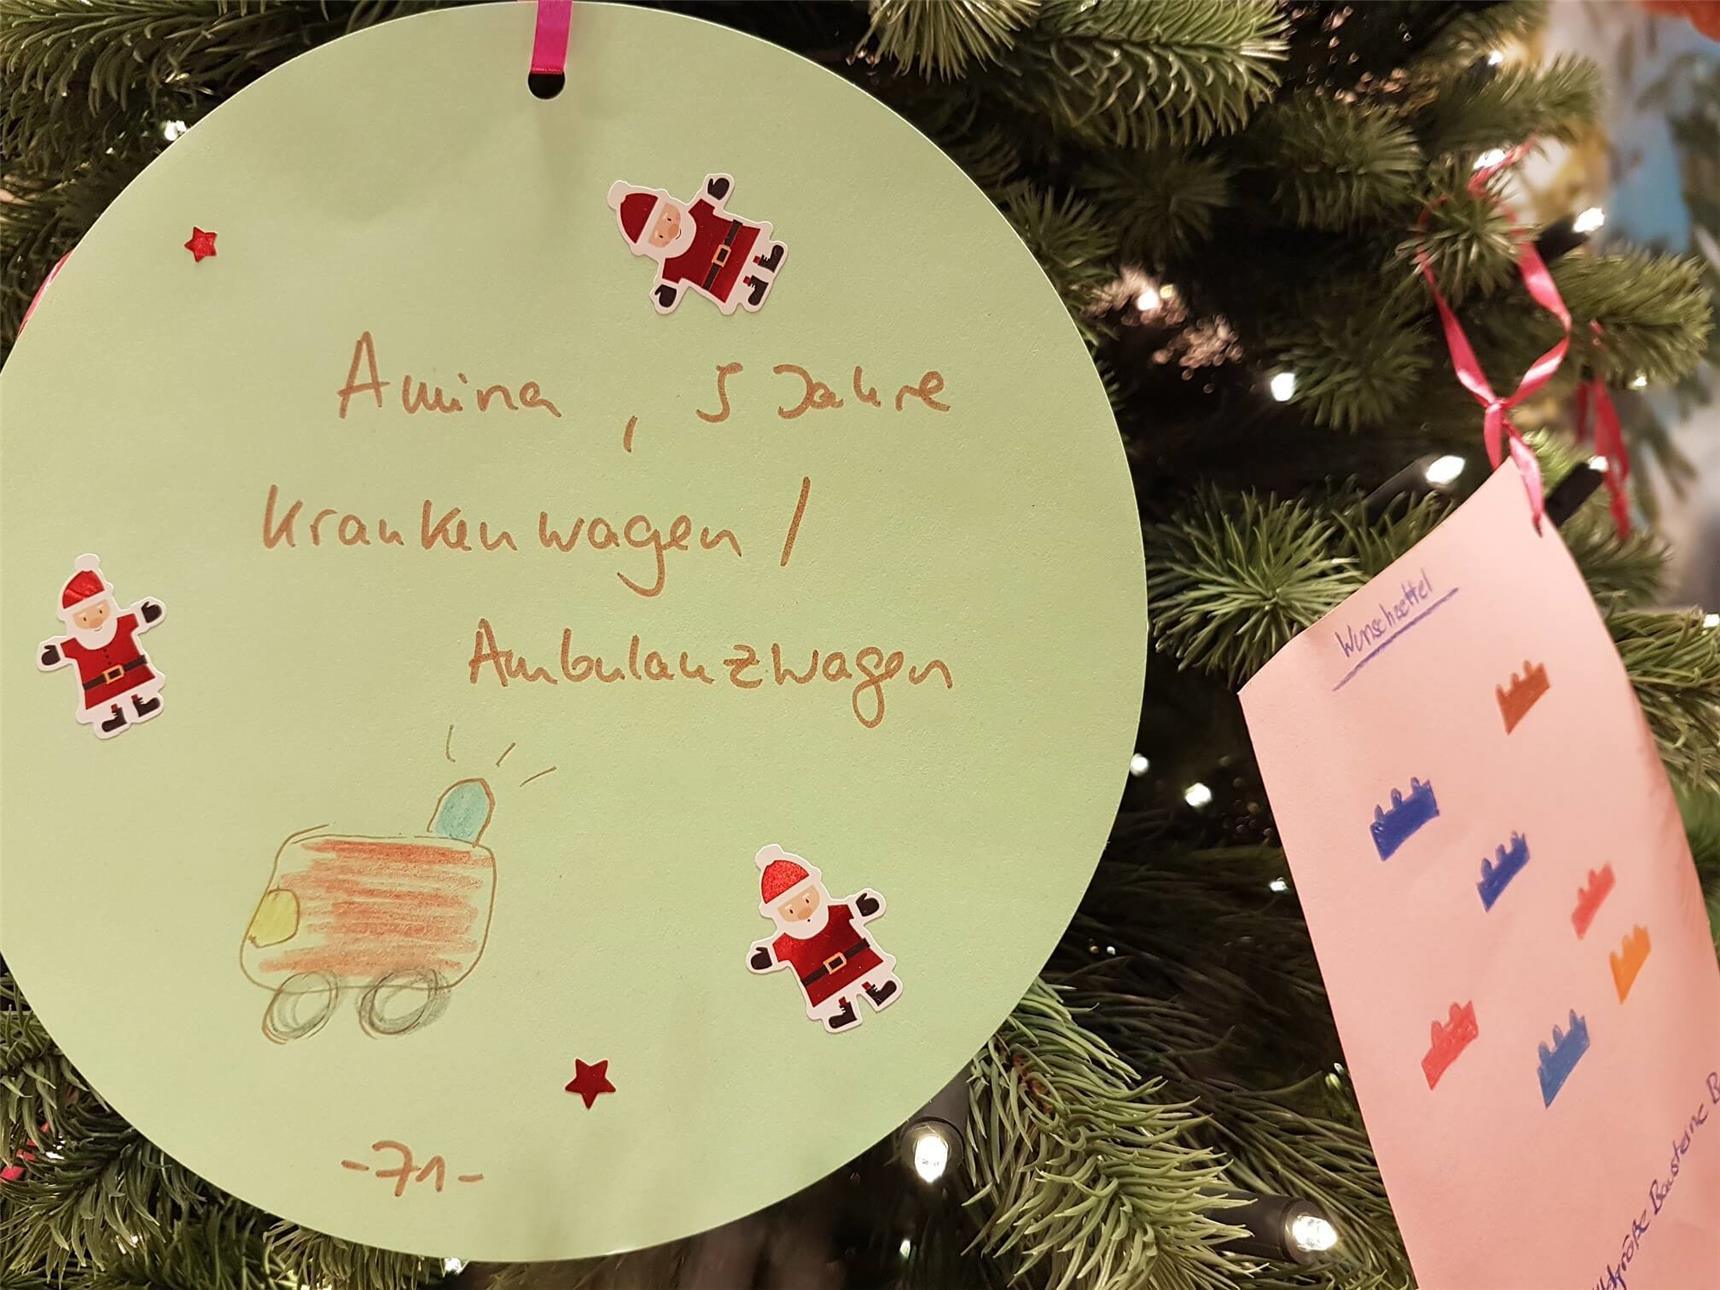 Amina, 5 Jahre
Krankenwagen /
Ambulanzwagen
-71-
Wunschzettel
große Bausteine